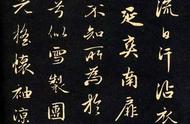 流日汗沾衣
延爽南扉
不知所為於
兮似雪製
光搖懷袖涼